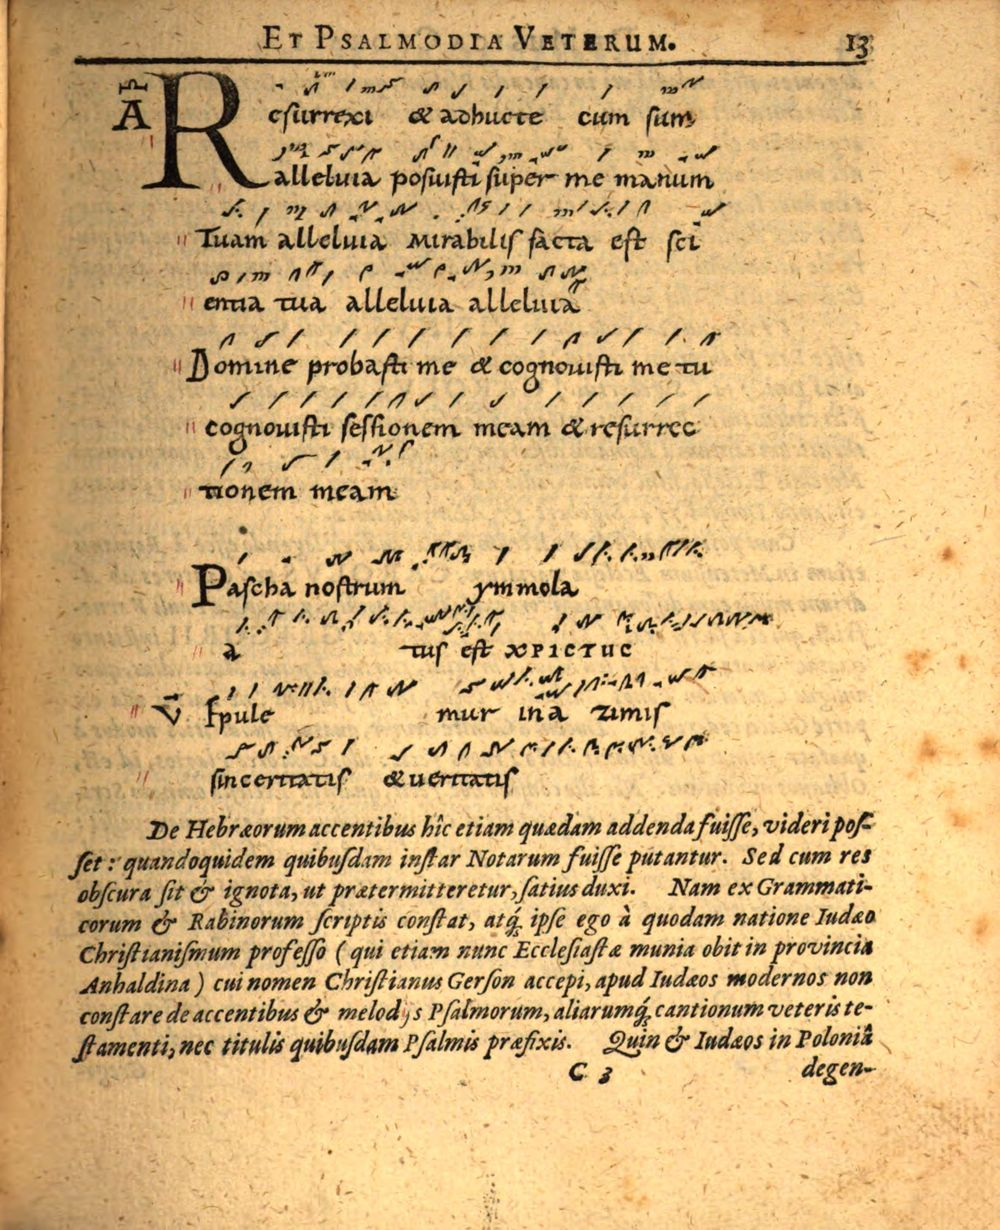 ET PSALMODIA VETERUM. 13
A Resurrexi & adhucte cum sum
alleluia posuisti super me manum
Tuam alleluia Mirabilis facta est sci
entia tua alleluia alleluia
Domine probasti me & cognouisti me tu
cognouisti sessionem meam & resurrec
tionem meam
Pascha nostrum ymmola
a tus est XPICTUC
V Epule mur in a zimis
sinceritatis & ueritatis
De Hebræorum accentibus hîc etiam quædam addenda fuisse, videri pos-
set: quandoquidem quibusdam instar Notarum fuisse putantur. Sed cum res
obscura sit & ignota, ut prætermitteretur, satius duxi. Nam ex Grammati-
corum & Rabinorum scriptis constat, atq́; ipse ego à quodam natione Iudæo
Christianismum professo (qui etiam nunc Ecclesiastæ munia obit in provincia
Anhaldina) cui nomen Christianus Gerson accepi, apud Iudæos modernos non
constare de accentibus & melodijs Psalmorum, aliarumq́; cantionum veteris te-
stamenti, nec titulis quibusdam Psalmis præfixis. Quin & Iudæos in Poloniâ
C 3 degen-